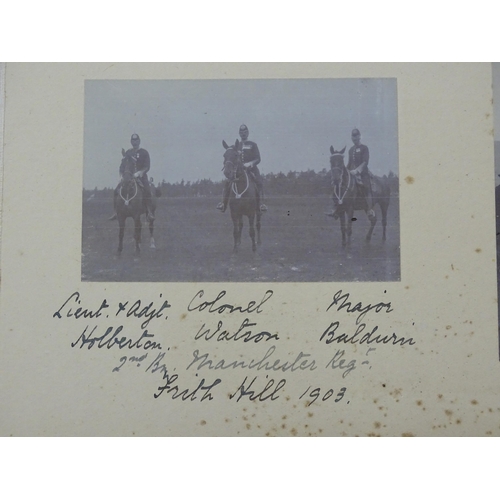 Lieut. & Adjt. Colonel Major
Holberton. Watson Baldwin
2nd Bn Manchester Regt
Frith Hill 1903.